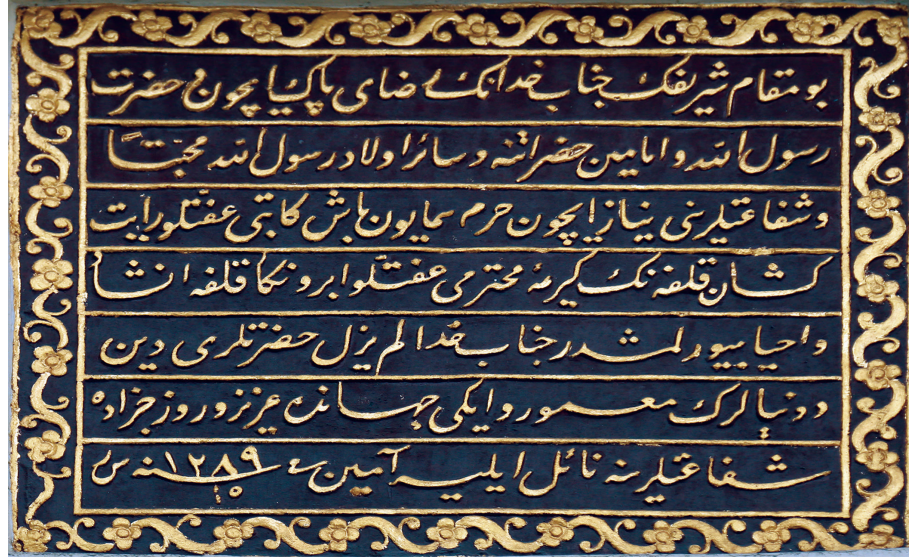 بو مقام شریفك جناب خدانك رضای پاکیچون و حضرت
رسول الله و امامین حضراتنه و سائر اولاد رسول الله محبتاً
و شفاعتلرنی نیاز ایچون حرم همایون باش کاتبی عفتلو رأیت
کشان قلفه نك کریمهٔ محترمی عفتلو ابرونکا قلفه انشا
و احیا بیورلمشدر جناب خدا لم یزل حضرتلری دین
و دنیالرك معمور و ایکی جهانده عزیز و روز جزاده
شفاعتلرینه نائل ایلیه آمین سنه ١٢٨٩